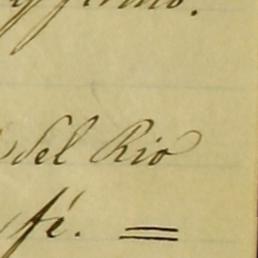 del Rio
fé. =